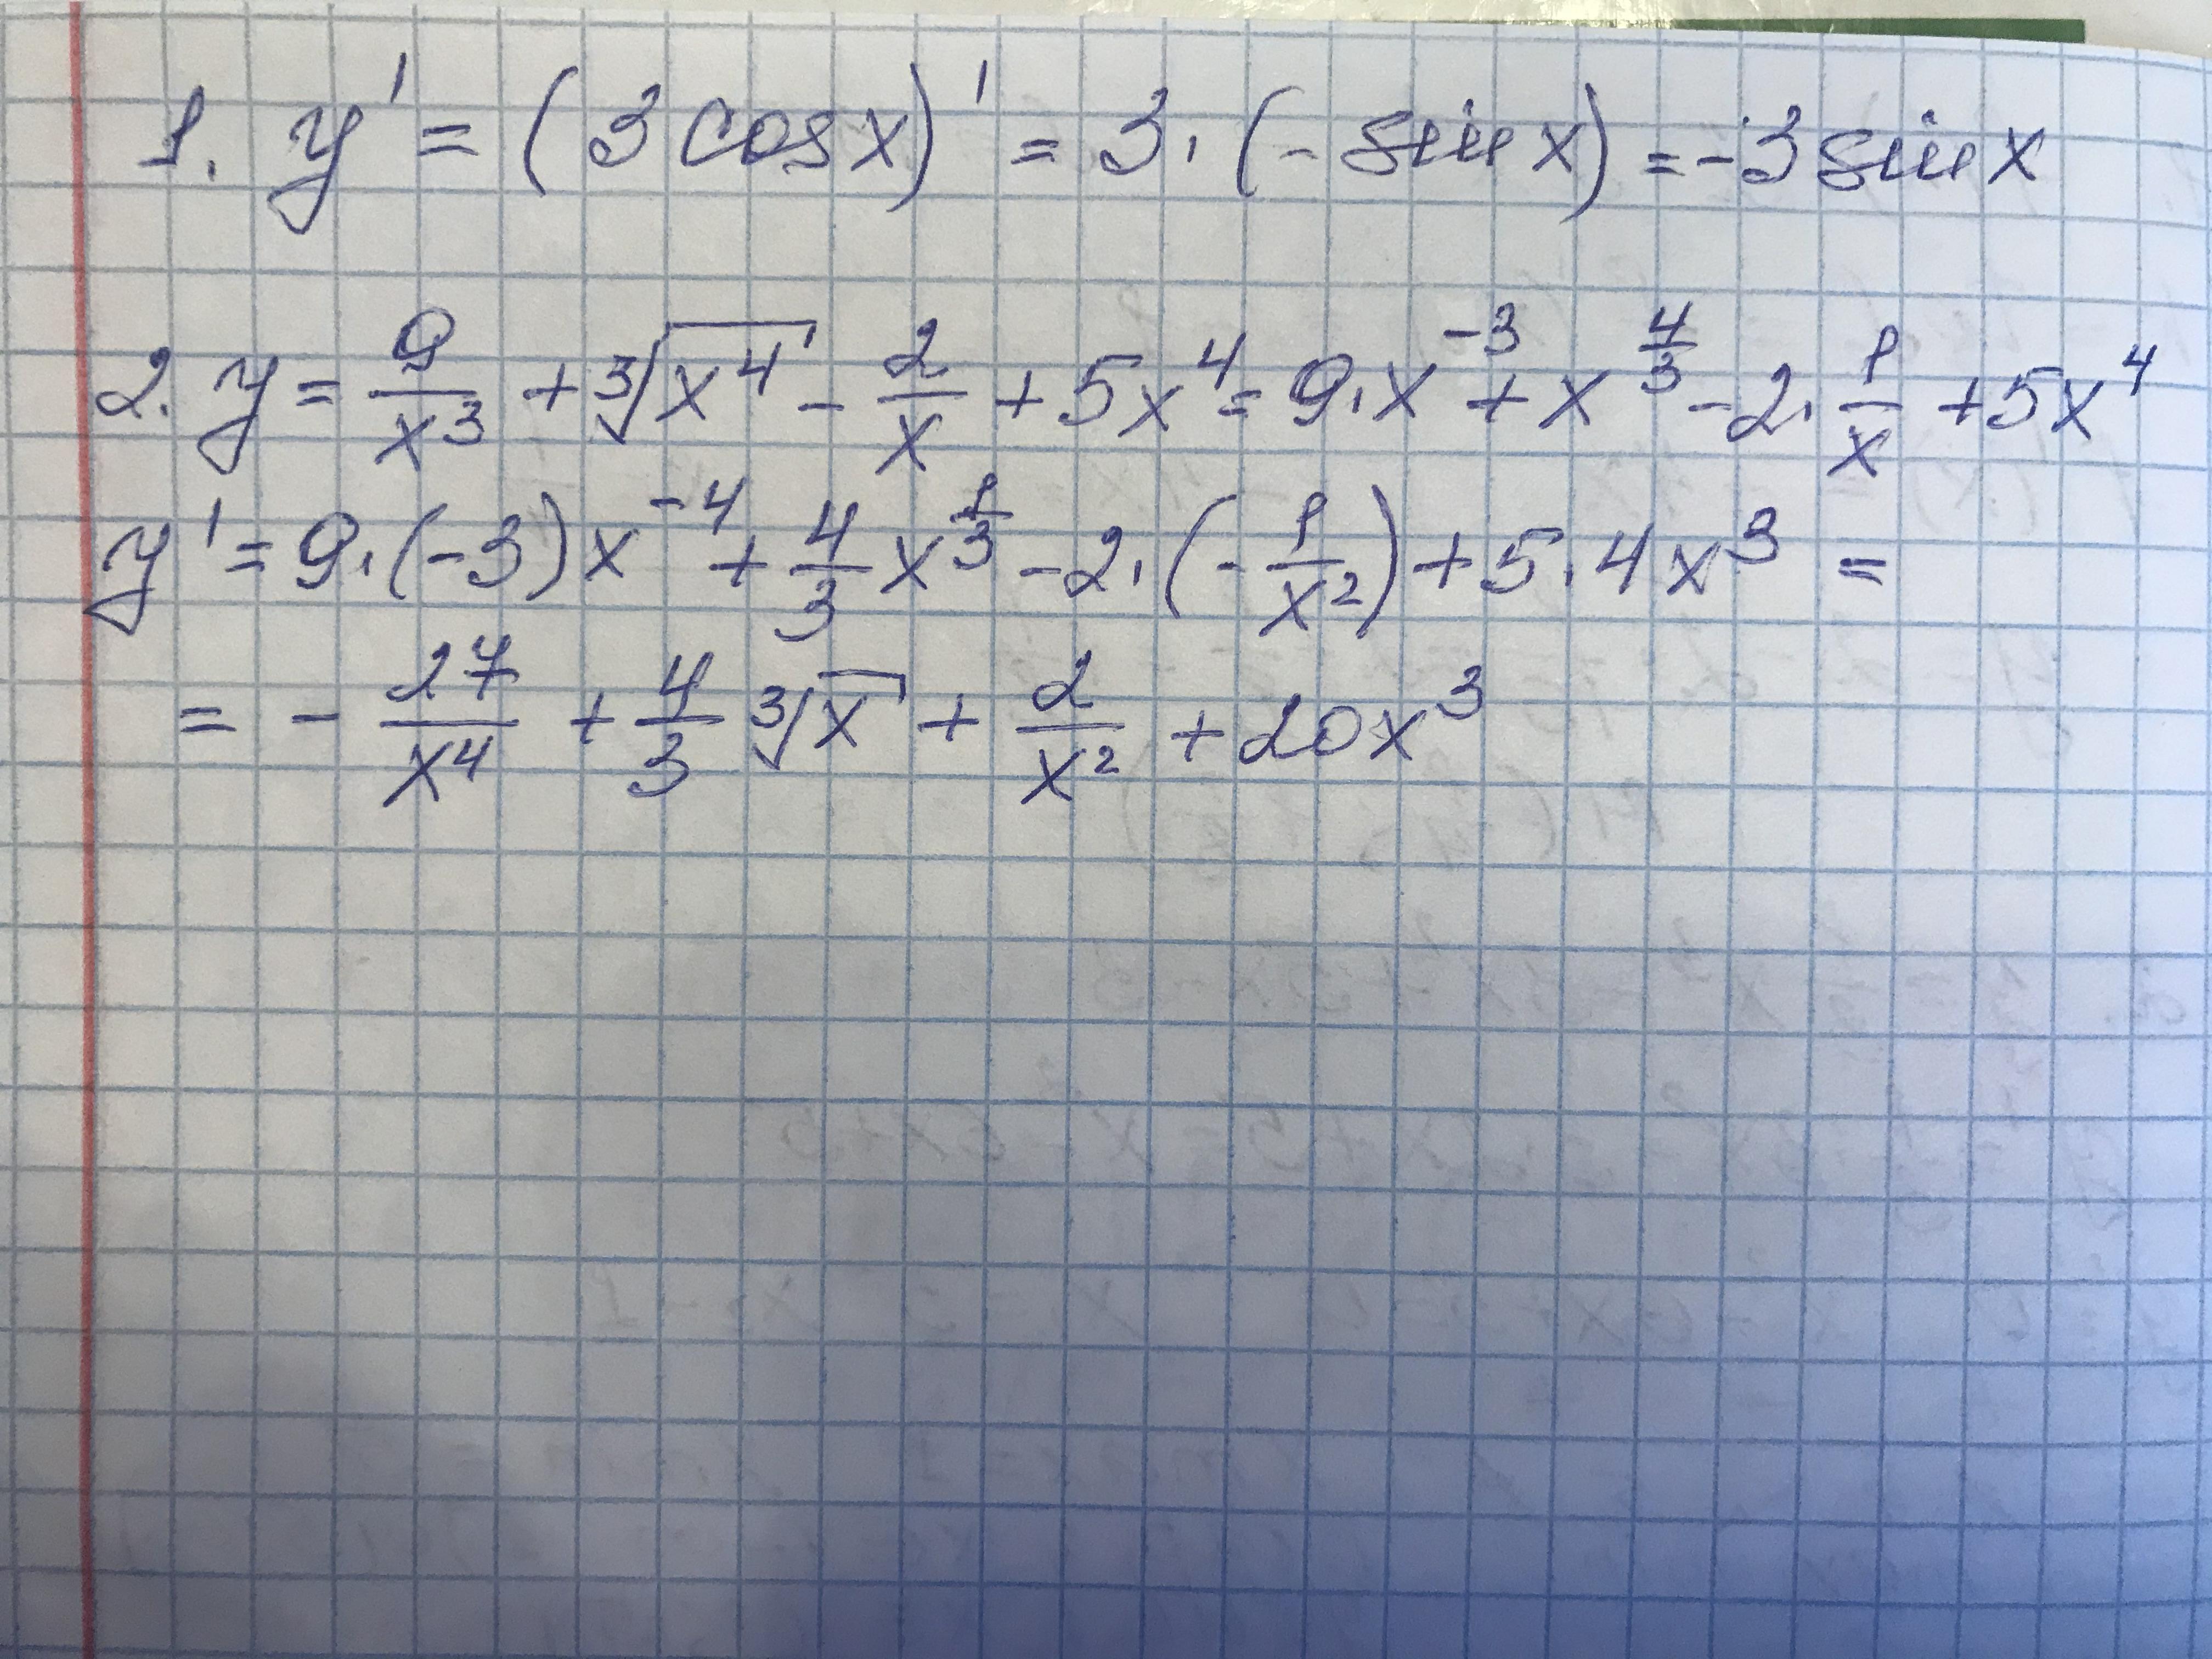 1. y' = (3 cos x)' = 3 · (- sin x) = -3 sin x
2. y = 9/x³ + ∛(x⁴) - 2/x + 5x⁴ = 9 · x^(-3) + x^(4/3) - 2 · 1/x + 5x⁴
y' = 9 · (-3) x^(-4) + 4/3 x^(1/3) - 2 · (- 1/x²) + 5 · 4x³ =
= - 27/x⁴ + 4/3 ∛x + 2/x² + 20x³